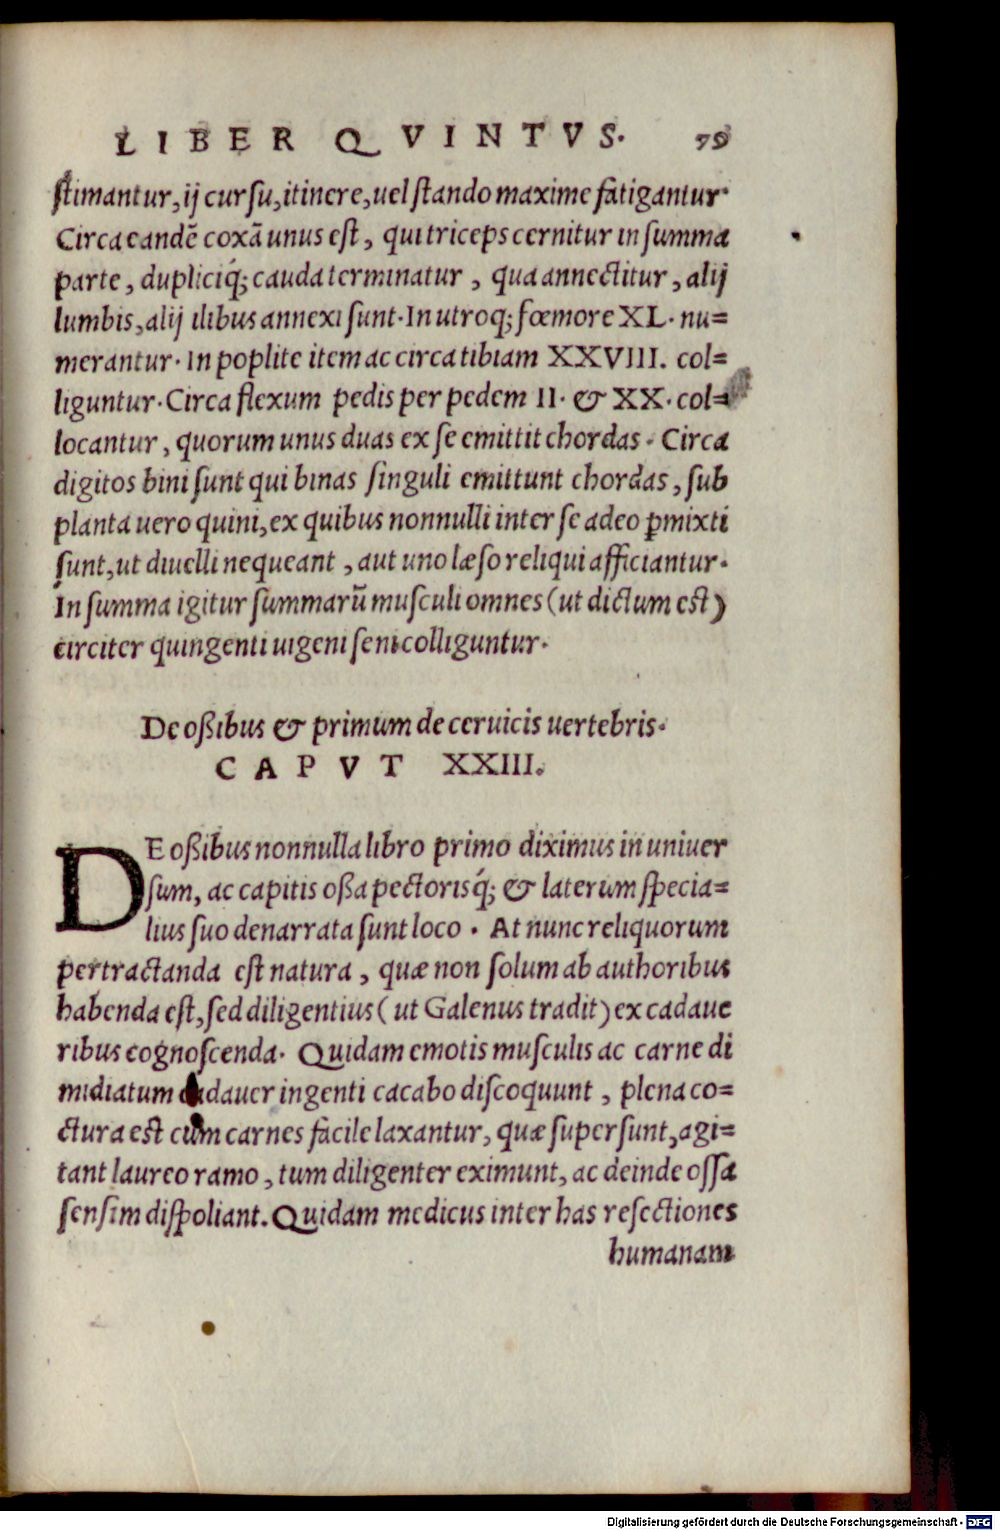 LIBER QVINTVS. 79
ſtimantur, ij curſu, itinere, uel ſtando maxime fatigantur.
Circa eandẽ coxã unus eſt, qui triceps cernitur in ſumma
parte, dupliciq́; cauda terminatur, qua annectitur, alij
lumbis, alij ilibus annexi ſunt. In utroq; fœmore XL. nu=
merantur. In poplite item ac circa tibiam XXVIII. col=
liguntur. Circa flexum pedis per pedem II. & XX. col=
locantur, quorum unus duas ex ſe emittit chordas. Circa
digitos bini ſunt qui binas ſinguli emittunt chordas, ſub
planta uero quini, ex quibus nonnulli inter ſe adeo ꝑmixti
ſunt, ut diuelli nequeant, aut uno læſo reliqui afficiantur.
In ſumma igitur ſummarũ muſculi omnes (ut dictum eſt)
circiter quingenti uigeni ſeni colliguntur.
De oßibus & primum de ceruicis uertebris.
CAPVT XXIII.
DE oßibus nonnulla libro primo diximus in uniuer
ſum, ac capitis oßa pectorisq́; & laterum ſpecia=
lius ſuo denarrata ſunt loco. At nunc reliquorum
pertractanda eſt natura, quæ non ſolum ab authoribus
habenda eſt, ſed diligentius (ut Galenus tradit) ex cadaue
ribus cognoſcenda. Quidam emotis muſculis ac carne di
midiatum cadauer ingenti cacabo diſcoquunt, plena co=
ctura eſt cum carnes facile laxantur, quæ ſuperſunt, agi=
tant laureo ramo, tum diligenter eximunt, ac deinde oſſa
ſenſim diſpoliant. Quidam medicus inter has reſectiones
humanam
Digitalisierung gefördert durch die Deutsche Forschungsgemeinschaft - DFG